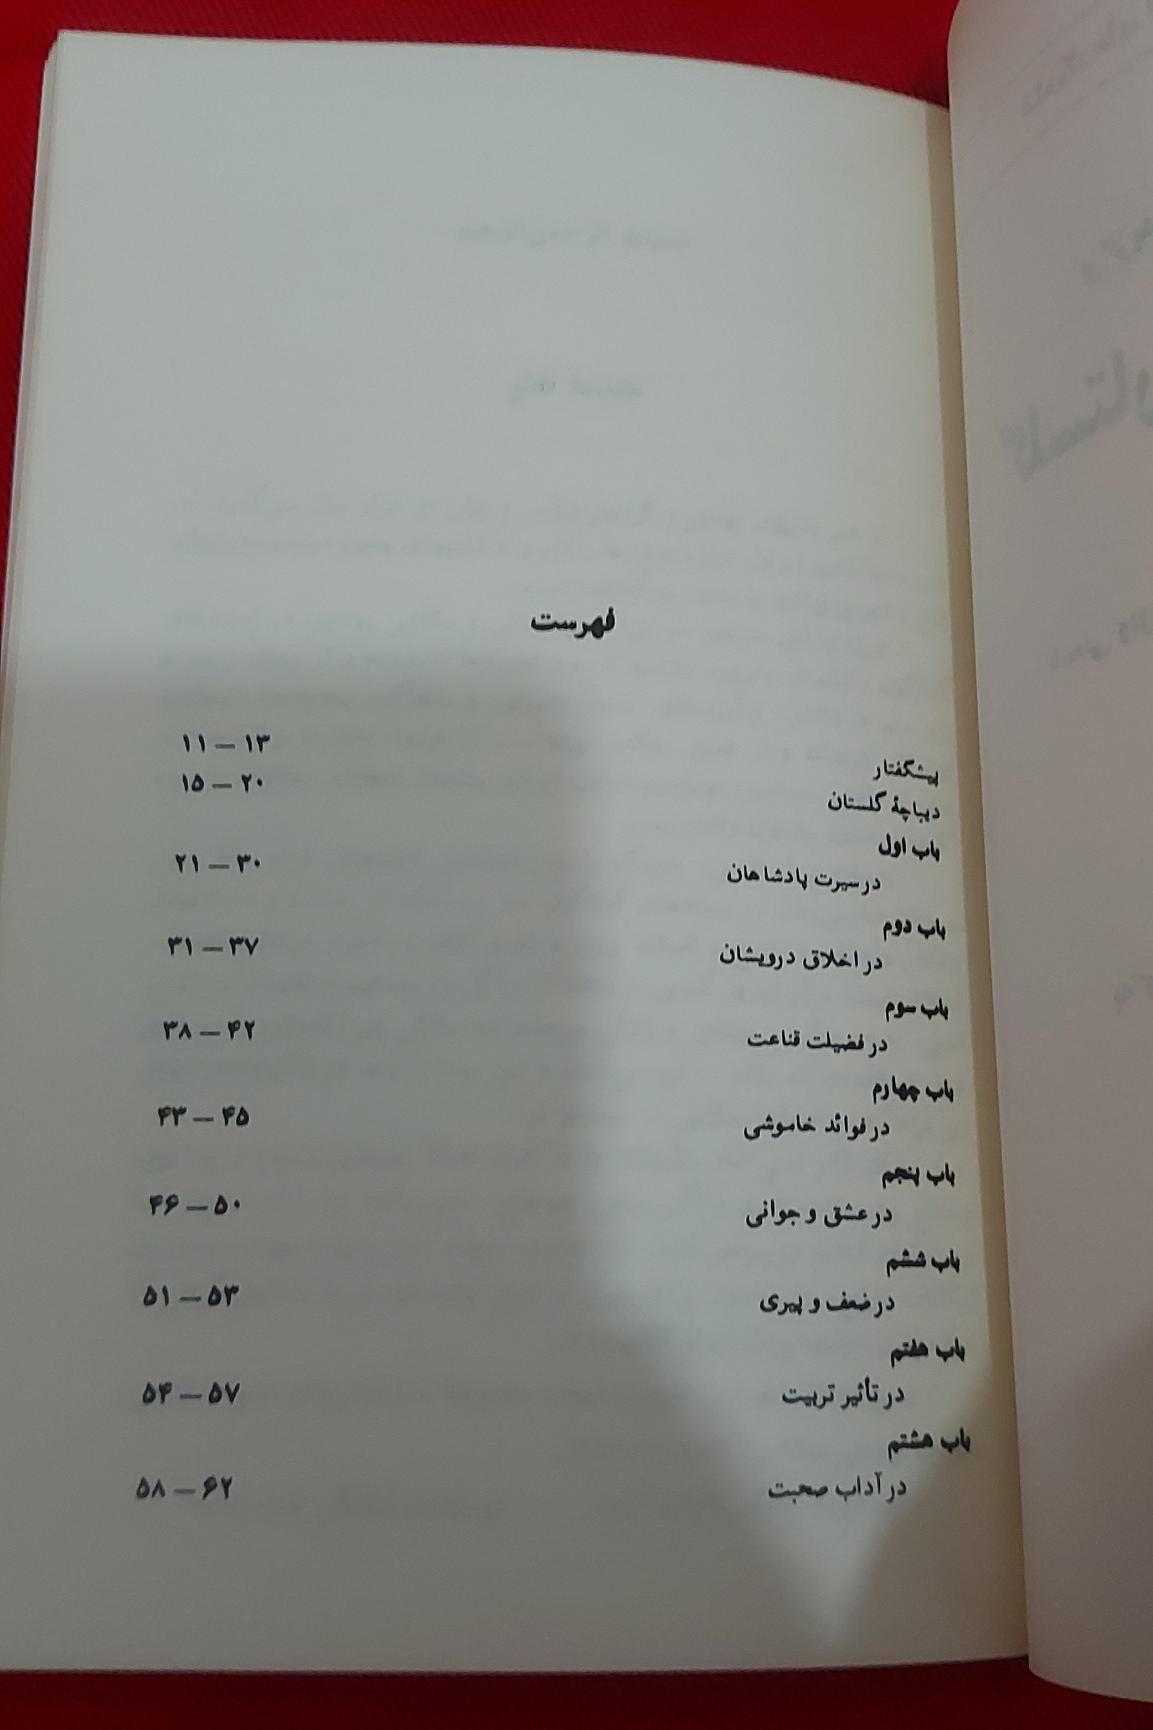 فهرست
پیشگفتار ۱۱ — ۱۳
دیباچهٔ گلستان ۱۵ — ۲۰
باب اول
در سیرت پادشاهان ۲۱ — ۳۰
باب دوم
در اخلاق درویشان ۳۱ — ۳۷
باب سوم
در فضیلت قناعت ۳۸ — ۴۲
باب چهارم
در فوائد خاموشی ۴۳ — ۴۵
باب پنجم
در عشق و جوانی ۴۶ — ۵۰
باب ششم
در ضعف و پیری ۵۱ — ۵۳
باب هفتم
در تأثیر تربیت ۵۴ — ۵۷
باب هشتم
در آداب صحبت ۵۸ — ۶۲